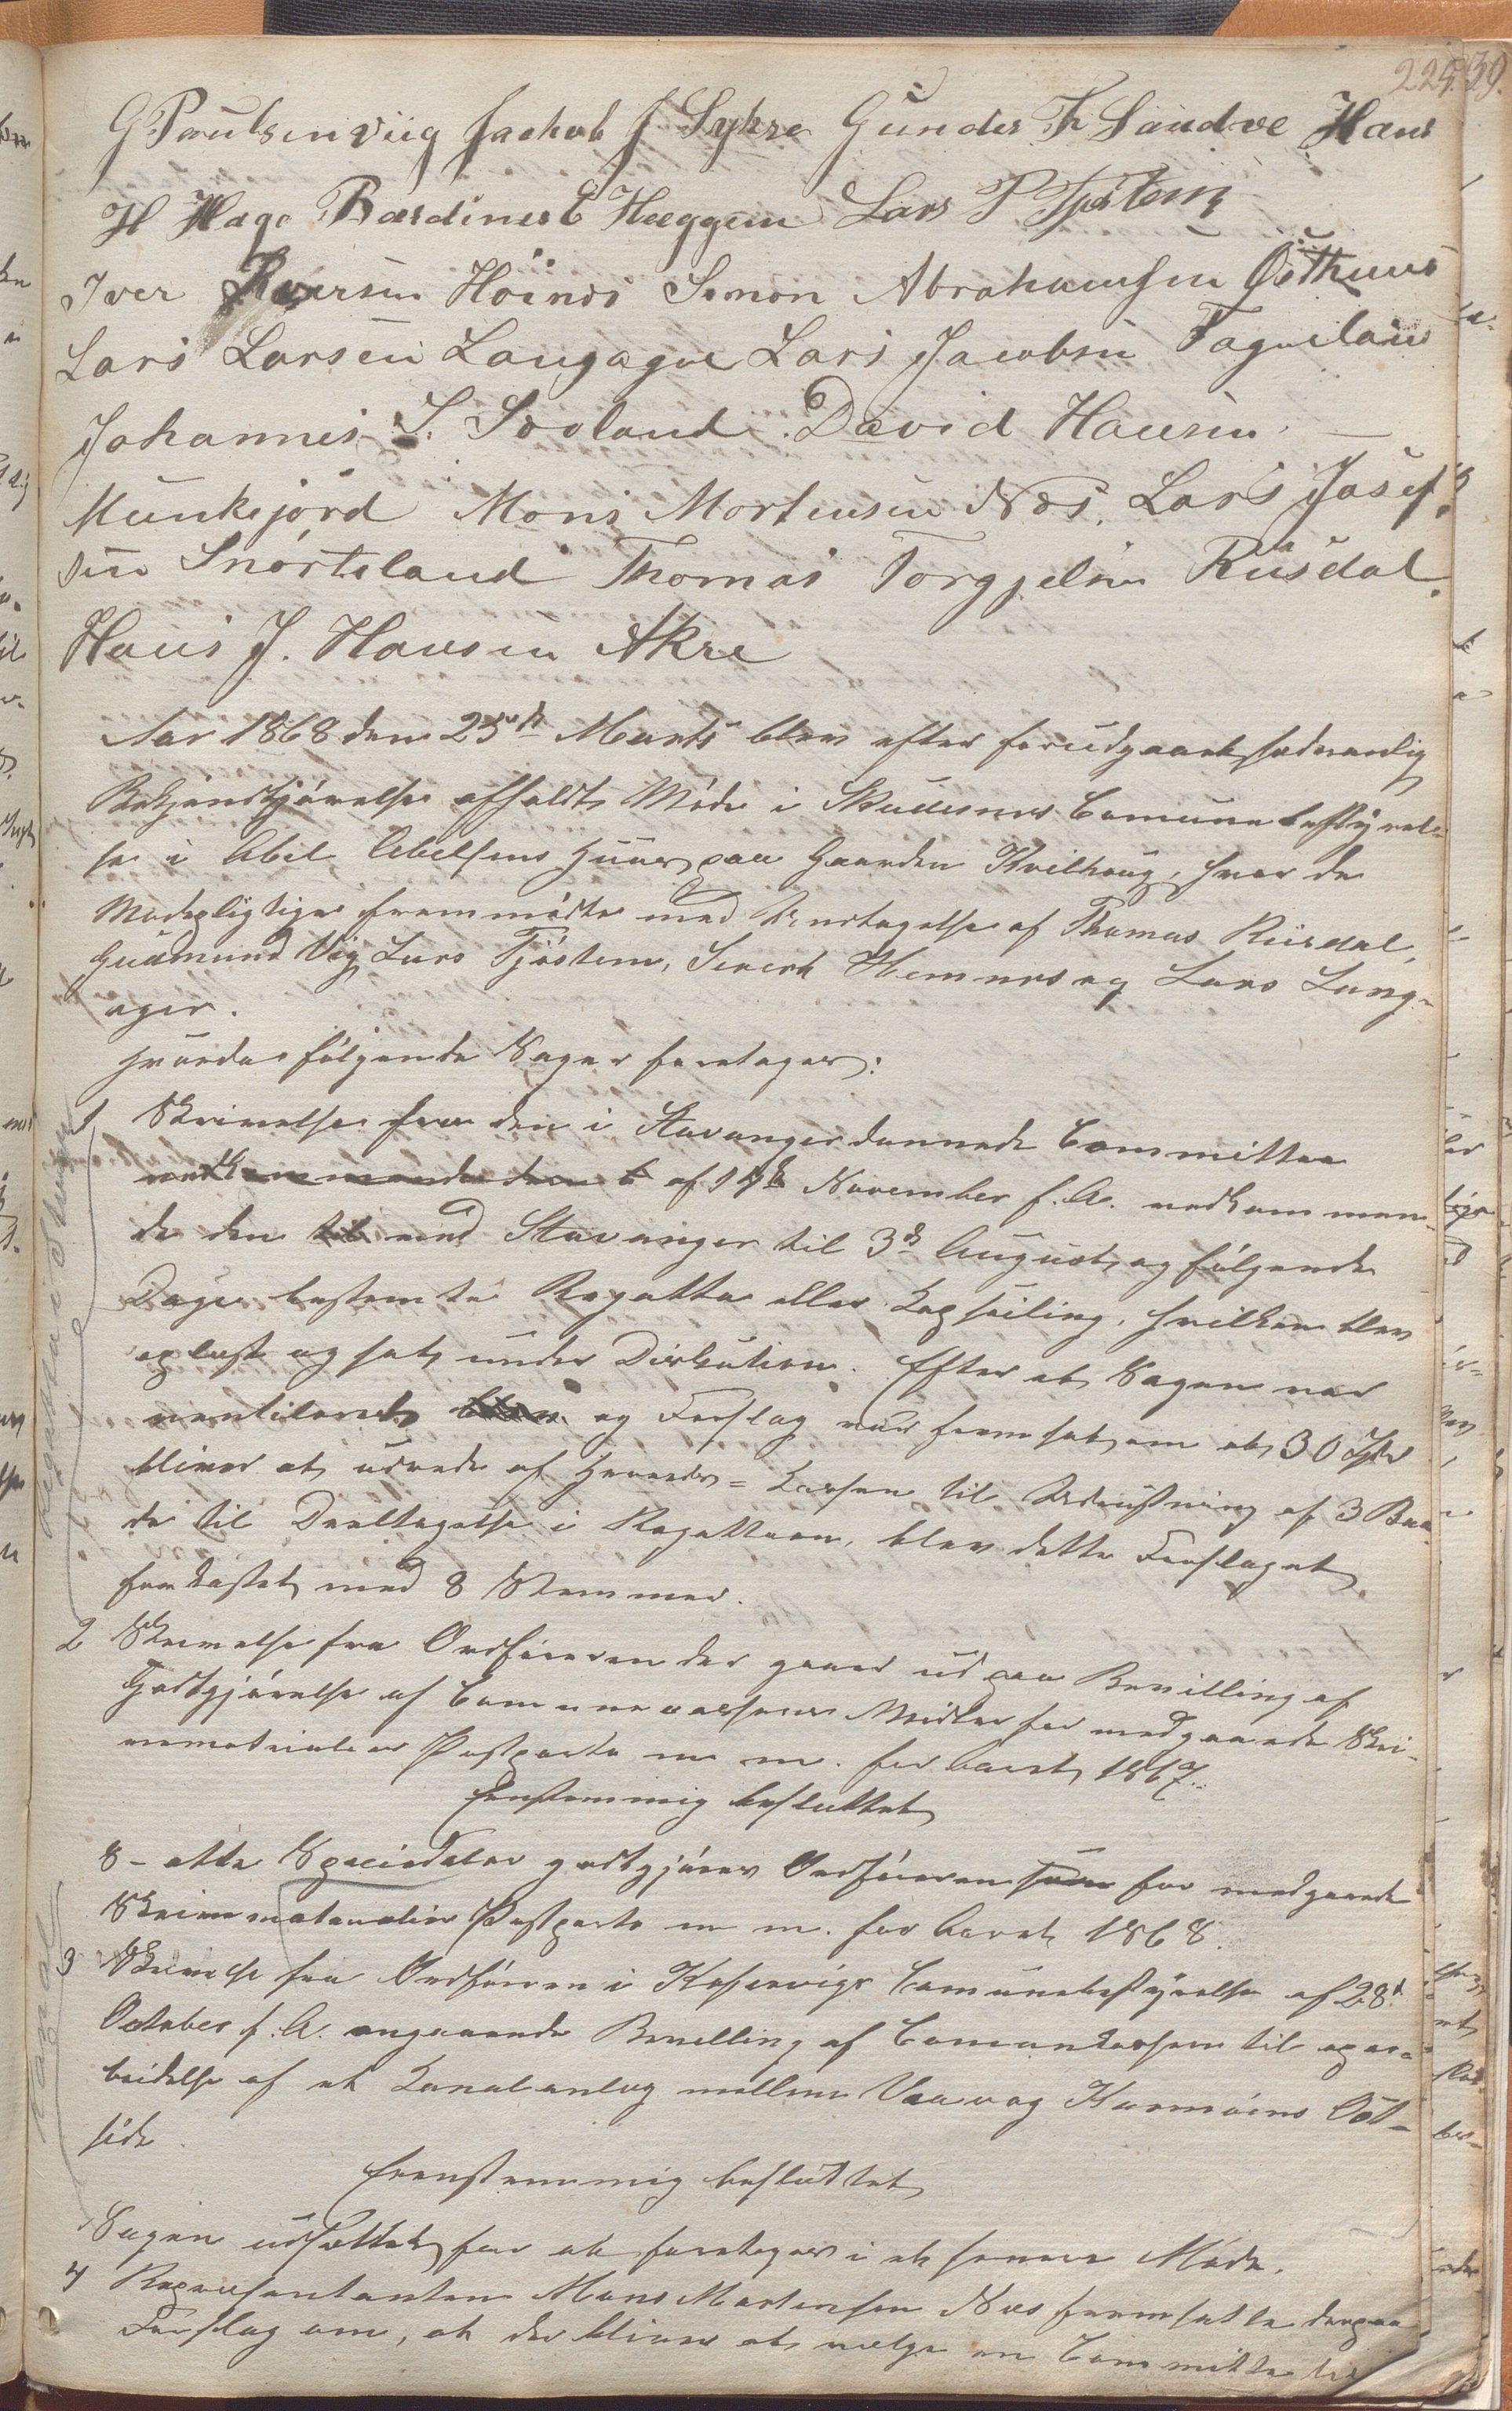 224. 39.
G Paulsen viig Jachob J Sykre Gunder Th Sandve Hans
H Hage Bardines E Heggem Lars P Tjøstem
Iver Iversen Höines Simon Abrahamsen Østhuus
Lars Larsen Langager Lars Jacobsen Fagerland
Johannes S. Sæoland. David Hansen
Munkejord Mons Mortensen Nes. Lars Josef
sen Snörteland Thomas Torgjelsen Riisdal.
Hans J. Hansen Akre
Aar 1868 den 25de Marts blev efter forudgaaet sædvanlig
Bekjendtgjørelse afholdt Møde i Skudesnes Comunebestyrel-
se i Abel Abelsens Huus paa Gaarden Kvilhoug, hvor de
Mødepligtige fremmødte med Undtagelse af Thomas Riisdal,
Gudmund Vig, Lars Tjøstem, Sivert Hemnes og Lars Lang-
ager.
Hvorda følgende Sager foretages:
1 Skrivelse fra den i Stavanger dannede Committee
vedkommende den 6 af 14de November f. A. vedkommen-
de den til ved Stavanger til 3de August og følgende
Dage bestemte Regatta eller Kapseiling, hvilken blev
oplæst og sat under Diskution. Efter at Sagen var
ventileret blev og Forslag var fremsat om at 30 Spd
bliver at udrede af Herreds-Kassen til Udrustning af 3 Baa
de til Deeltagelse i Regattaen, blev dette Forslaget
forkastet med 8 Stemmer.
2 Skrivelse fra Ordføreren der gaar ud paa Bevilling af
Godtgjørelse af Communecassens Midler for medgaaede Skri-
vematerialier Postporto m m. for Aaret 1867.
Eenstemmig besluttet
8 - otte Speciedaler godtgjøres Ordføreren som for medgaaede
Skrivematerialier Postporto m m. for Aaret 1868.
3 Skrivelse fra Ordføreren i Kopervigs Comunebestyrelse af 28d
October f. A. angaaende Bevilling af Comunekassen til opar-
beidelse af et Kanalanlæg mellem Vea og Karmøens Øst-
side.
Eenstemmig besluttet
Sagen udsættes for at foretages i et senere Møde.
4 Repræsentanten Mons Mortensen Næs fremsatte derpaa
Forslag om, at der bliver at vælge en Committe til